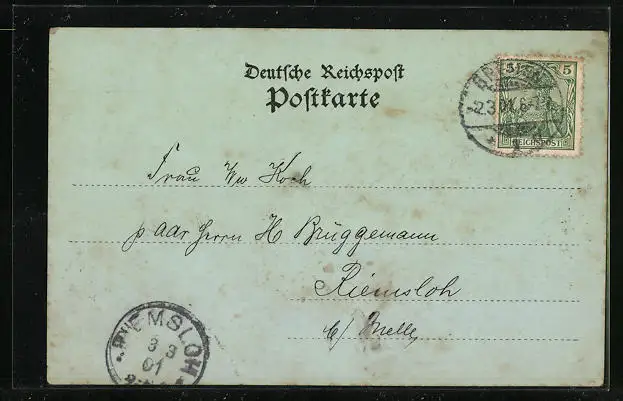 Deutsche Reichspost
Postkarte
5 5
REICHSPOST
BREMEN
-2.3.01.6-7
Frau Ww Koch
p aar Herrn H Brüggemann
Riemsloh
b/ Melle
RIEMSLOH
3 3
01